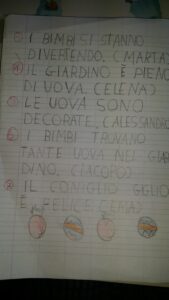 I BIMBI SI STANNO
DIVERTENDO. (MARTA)
IL GIARDINO È PIENO
DI UOVA. (ELENA)
LE UOVA SONO
DECORATE. (ALESSANDRO
I BIMBI TROVANO
TANTE UOVA NEL GIAR
DINO. (JACOPO)
IL CONIGLIO
È FELICE.